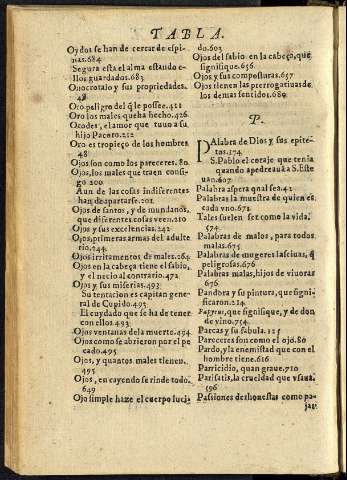 TABLA.
Oydos se han de cercar de espi-
nas.684
Segura esta el alma estando e-
llos guardados.683
Onocrotalo y sus propriedades.
48
Oro peligro del q̃ le possee.421
Oro los males que ha hecho.426
Ozodes, el amor que tuuo a su
hijo Pacoro.212
Oro es tropieço de los hombres
48
Ojos son como los pareceres.80
Ojos, los males que traen consi-
go 200
Aun de las cosas indiferentes
han de apartarse.201
Ojos de santos, y de mundanos,
que diferentes cosas veen.210
Ojos y sus excelencias.242
Ojos, primeras armas del adulte
rio.244.
Ojos irritamentos de males.264
Ojos en la cabeça tiene el sabio,
y el necio al contrario.472
Ojos y sus miserias.493
Su tentacion es capitan gene-
ral de Cupido.493
El cuydado que se ha de tener
con ellos.493
Ojos ventanas de la muerte.494
Ojos como se abrieron por el pe
cado.495
Ojo, y quantos males tienen.
495
Ojos, en cayendo se rinde todo.
649
Ojo simple haze el cuerpo luci-
do.603
Ojos del sabio en la cabeça, que
signifique.656.
Ojos y sus composturas.657
Ojos tienen las prerrogatiuas de
los demas sentidos.680
P.
PAlabra de Dios y sus epite-
tos.174.
S. Pablo el coraje que tenia
quando apedreauã a S. Este
uan.607
Palabra aspera qual sea.42
Palabras la muestra de quien es
cada vno.671
Tales suelen ser como la vida.
574.
Palabras de malos, para todos
males.675
Palabras de mugeres lasciuas, q̃
peligrosas.676
Palabras malas, hijos de viuoras
676
Pandora y su pintura, que signi-
ficaron.224
que signifique, y de don
de vino.754
Parcas y su fabula.125
Pareceres son como el ojo.80
Pardo, y la enemistad que con el
hombre tiene.616
Parricidio, quan graue.710
Parisatis, la crueldad que vsaua.
596
Passiones deshonestas como pa-
jas